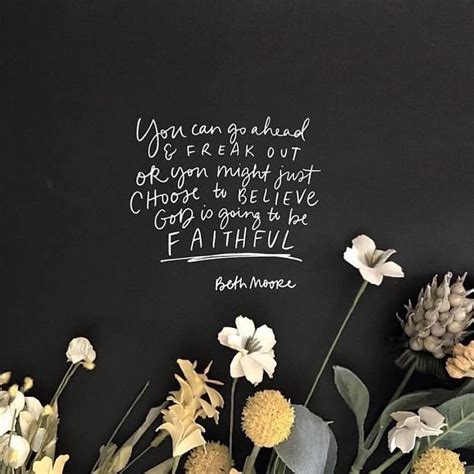 You can go ahead
& FREAK OUT
OR you might just
CHOOSE to BELIEVE
GOD is going to be
FAITHFUL
Beth Moore